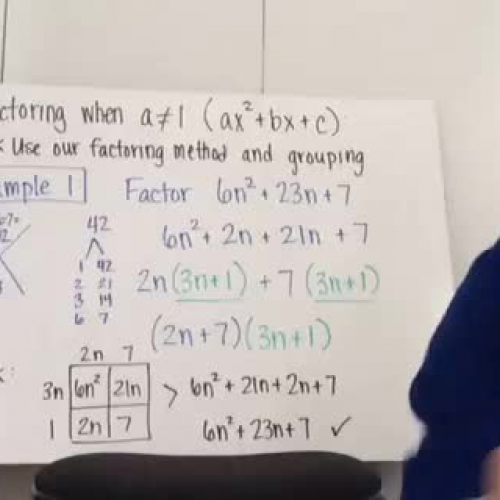 ctoring when a≠1 (ax²+bx+c)
: Use our factoring method and grouping
ample 1 Factor 6n²+23n+7
42
6n²+2n+21n+7
1 42
2 21
3 14
6 7
2n(3n+1)+7(3n+1)
(2n+7)(3n+1)
2n 7
3n 6n² 21n > 6n²+21n+2n+7
1 2n 7 6n²+23n+7 ✓